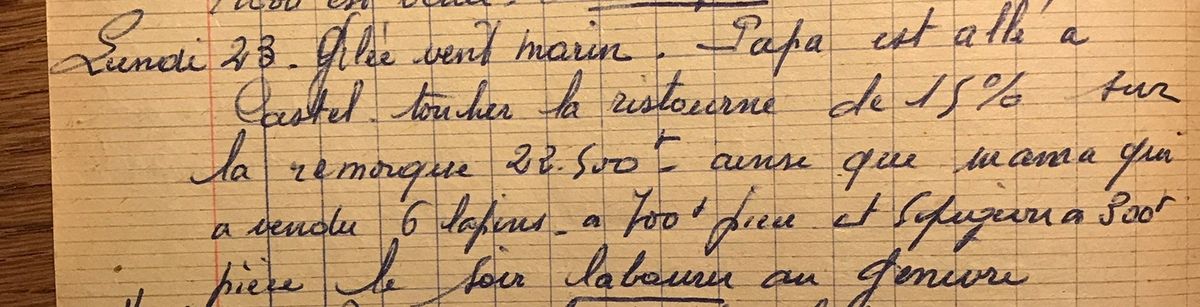 Lundi 23. Gelée vent marin. Papa est allé a
Castel toucher la ristourne de 15% sur
la remorque 22.500f - ainsi que mama qui
a vendu 6 lapins - a 700f piece et 5 pigeons a 300f
pièce le soir labourer au Genievre